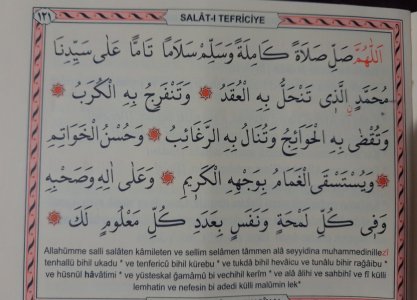 ١٢١ SALÂT-I TEFRİCİYE
اَللّٰهُمَّ صَلِّ صَلَاةً كَامِلَةً وَسَلِّمْ سَلَامًا تَامًّا عَلٰى سَيِّدِنَا
مُحَمَّدٍ الَّذِى تَنْحَلُّ بِهِ الْعُقَدُ ❋ وَتَنْفَرِجُ بِهِ الْكُرَبُ ❋
وَتُقْضٰى بِهِ الْحَوَائِجُ وَتُنَالُ بِهِ الرَّغَائِبُ ❋ وَحُسْنُ الْخَوَاتِمِ
❋ وَيُسْتَسْقَى الْغَمَامُ بِوَجْهِهِ الْكَرِيمِ ❋ وَعَلٰى اٰلِهِ وَصَحْبِهِ
وَفِى كُلِّ لَمْحَةٍ وَنَفَسٍ بِعَدَدِ كُلِّ مَعْلُومٍ لَكَ ❋
Allahümme salli salâten kâmileten ve sellim selâmen tâmmen alâ seyyidina muhammedinillezî
tenhallü bihil ukadu * ve tenfericü bihil kürebu * ve tukdâ bihil hevâicu ve tunâlu bihir rağâibu *
ve hüsnül hâvâtimi * ve yüsteskal ğamâmû bi vechihil kerîm * ve alâ âlihi ve sahbihî ve fî külli
lemhatin ve nefesin bi adedi külli malûmin lek*